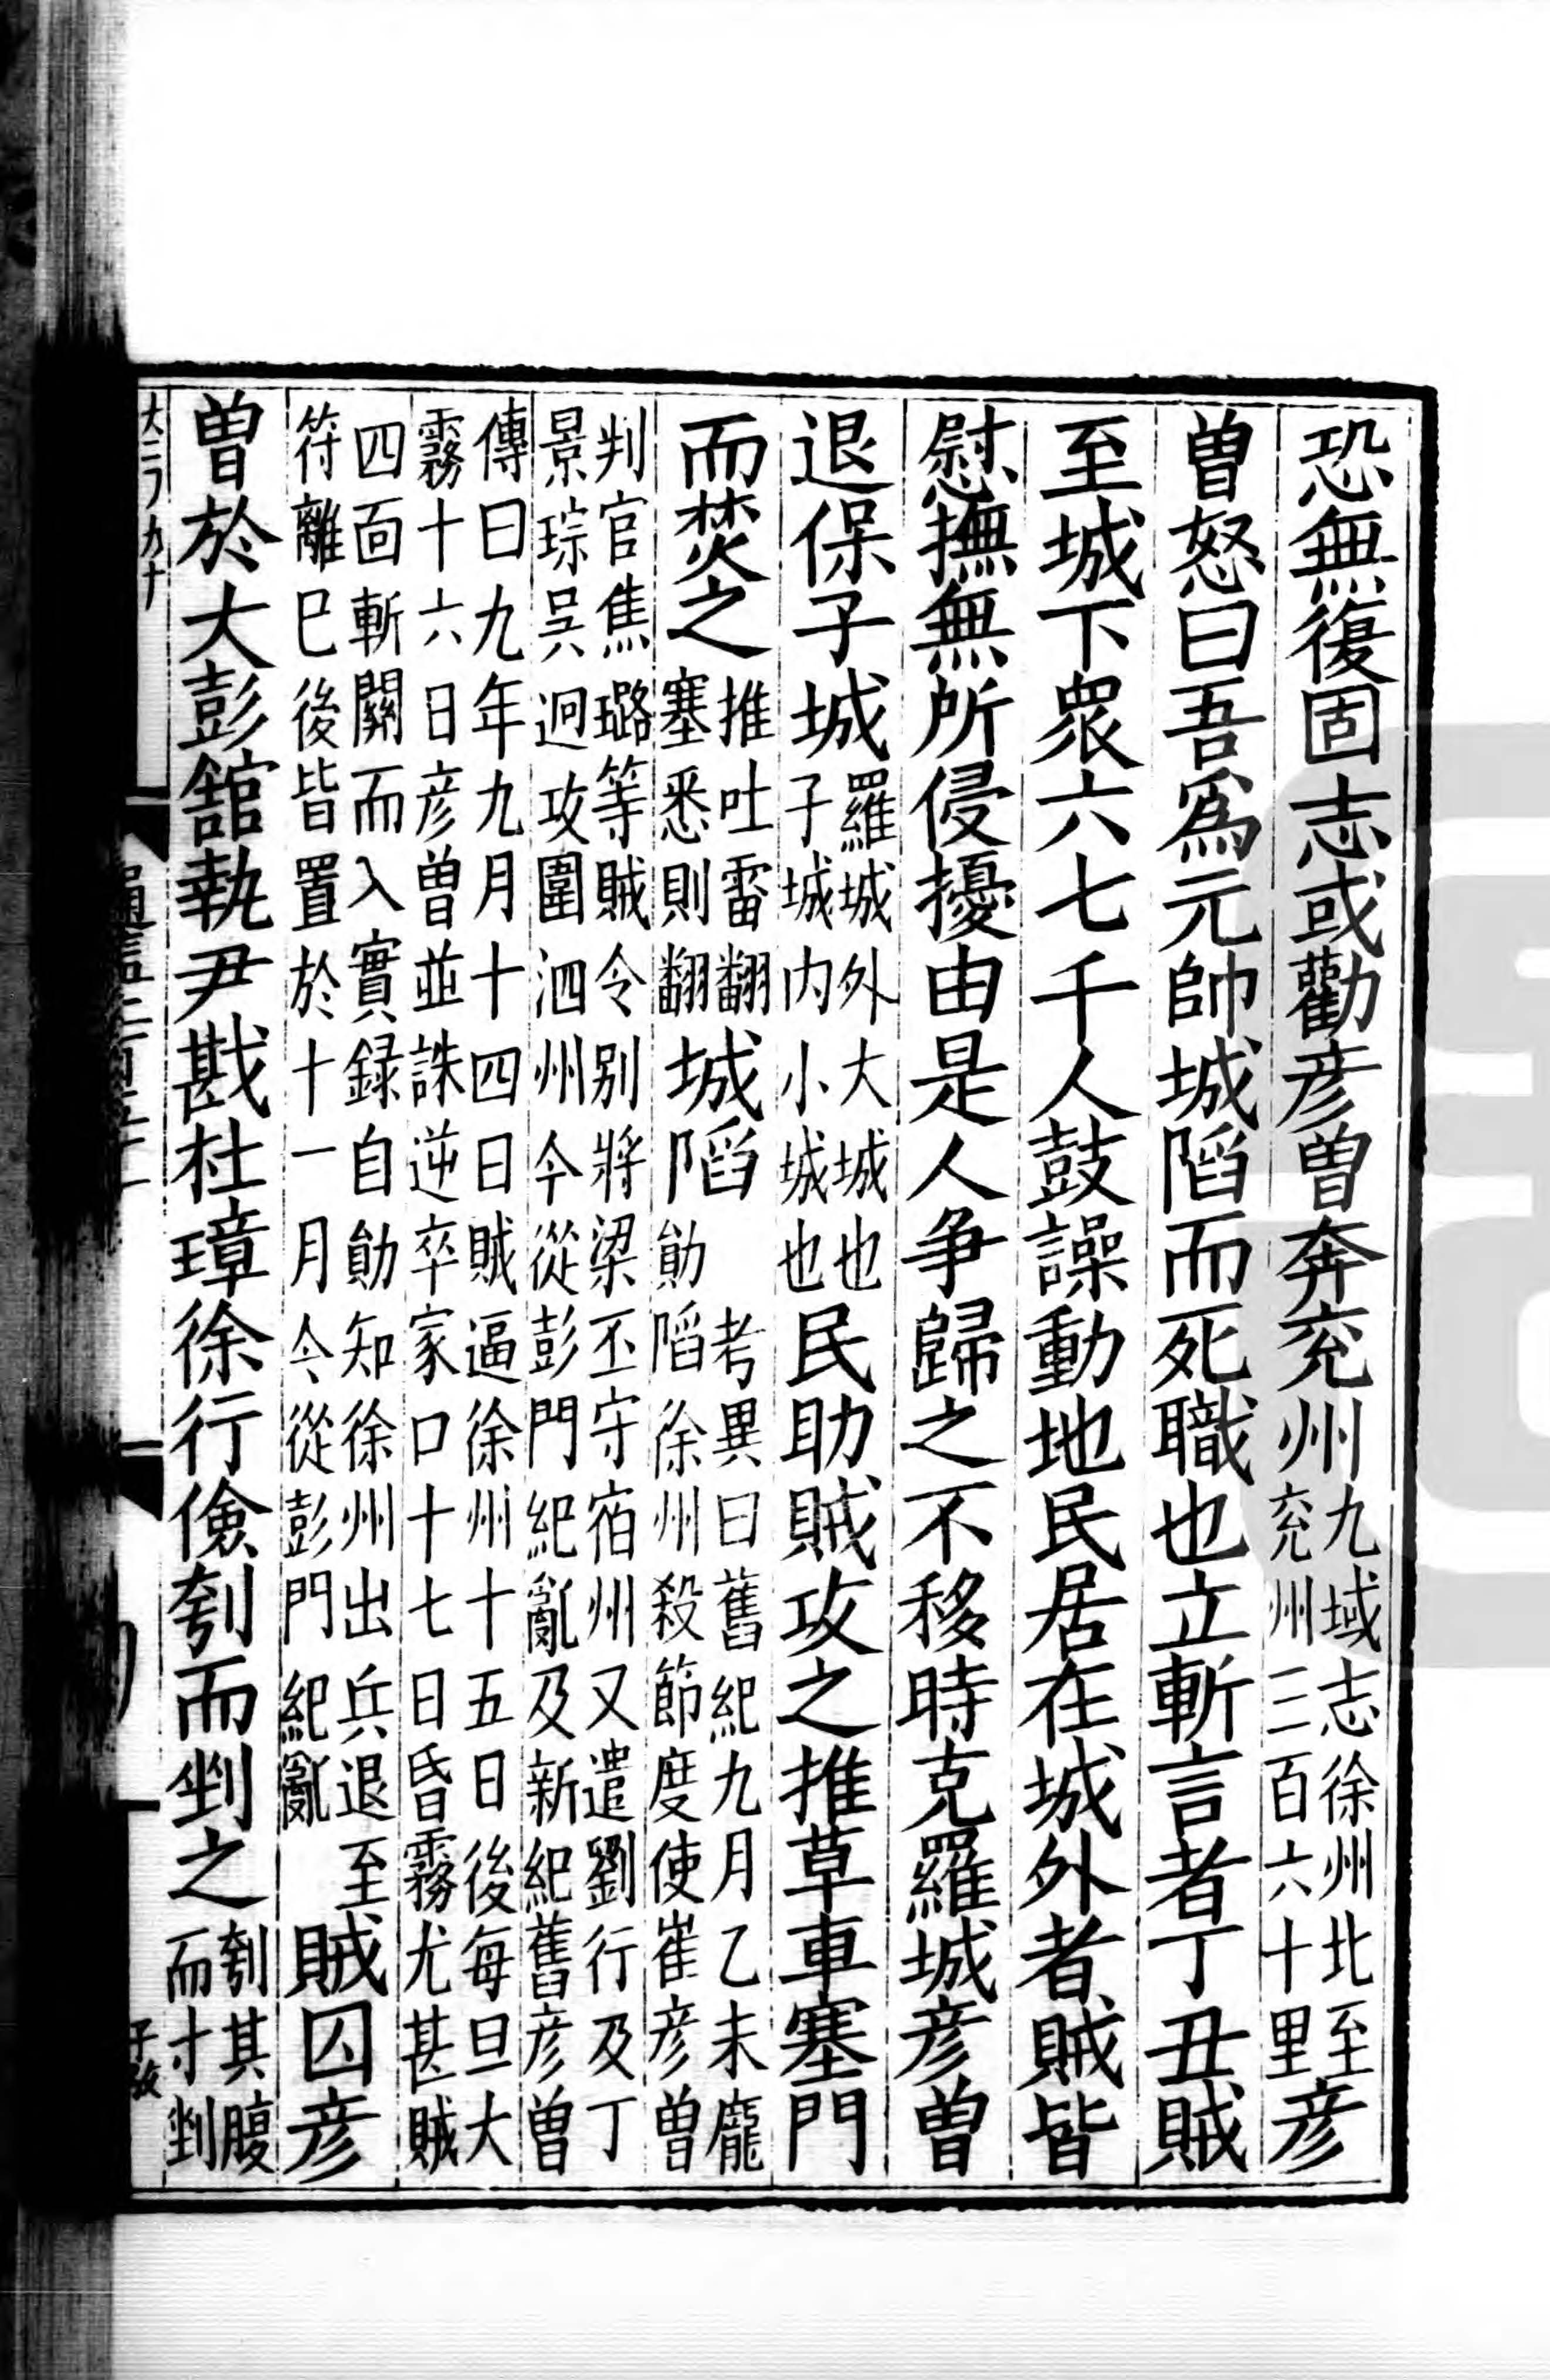 恐無復固志或勸彦曽奔兖州九域志徐州北至兖州三百六十里彦
曽怒曰吾爲元帥城陷而死職也立斬言者丁丑賊
至城下衆六七千人鼓譟動地民居在城外者賊皆
慰撫無所侵擾由是人争歸之不移時克羅城彦曽
退保子城羅城外大城也子城内小城也民助賊攻之推草車塞門
而焚之推吐雷翻塞悉則翻城陷考異曰舊紀九月乙未龐勛陷徐州殺節度使崔彦曽
判官焦璐等賊令别將梁丕守宿州又遣劉行及丁景琮吳迥攻圍泗州今從彭門紀亂及新紀舊彦曽
傳曰九年九月十四日賊逼徐州十五日後每旦大霧十六日彦曽並誅逆卒家口十七日昏霧尤甚賊
四面斬關而入實録自勛知徐州出兵退至符離巳後皆置於十一月今從彭門紀亂賊囚彦
曽於大彭館執尹戡杜璋徐行儉刳而剉之刳其腹而寸剉